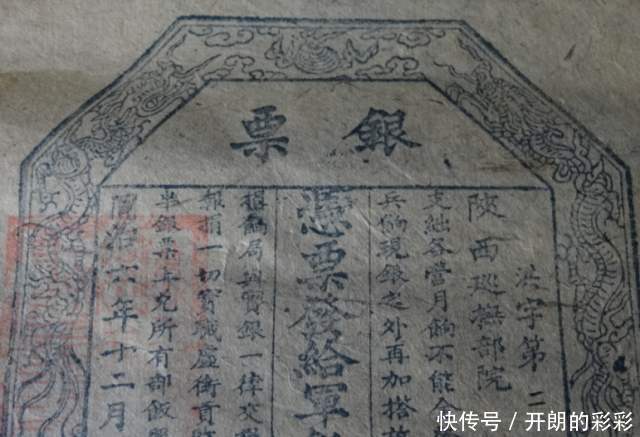 銀票
洪字第二
陝西巡撫部院
支絀各營月餉不能全
兵餉現銀之外再加搭
憑票發給軍
局與實銀一律交
報捐一切實職虛銜貢
半銀票年免所有部飯
同治六年十二月
快传号 / 开朗的彩彩